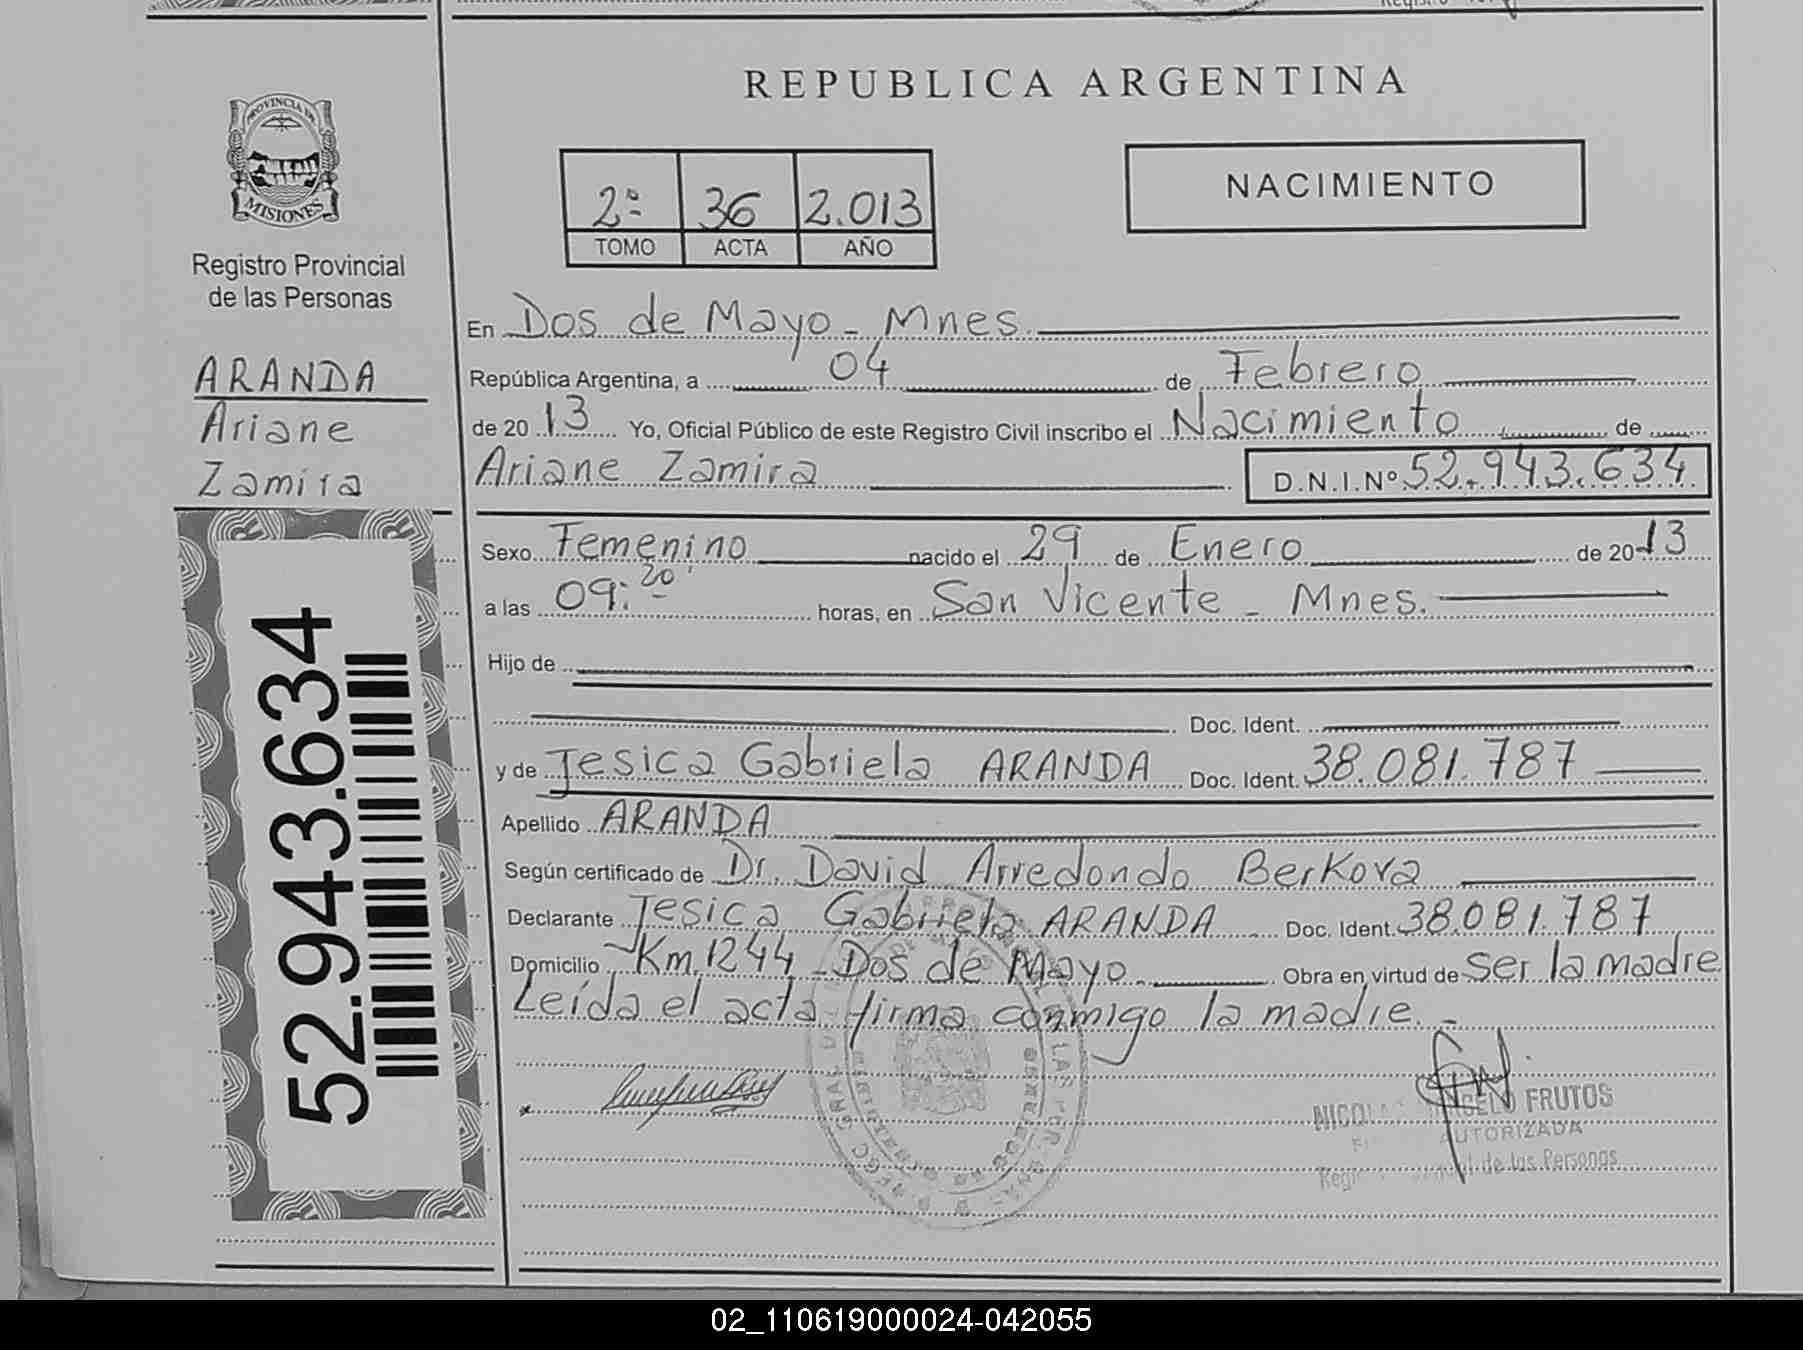 REPUBLICA ARGENTINA
PROVINCIA DE
MISIONES
Registro Provincial
de las Personas
ARANDA
Ariane
Zamira
52.943.634
2º 36 2.013
TOMO ACTA AÑO
NACIMIENTO
En Dos de Mayo - Mnes.
República Argentina, a 04 de Febrero
de 2013 Yo, Oficial Público de este Registro Civil inscribo el Nacimiento de
Ariane Zamira D.N.I.Nº 52.943.634
Sexo Femenino nacido el 29 de Enero de 2013
a las 09:20' horas, en San Vicente - Mnes.
Hijo de
Doc. Ident.
y de Jesica Gabriela ARANDA Doc. Ident. 38.081.787
Apellido ARANDA
Según certificado de Dr. David Arredondo Berkova
Declarante Jesica Gabriela ARANDA Doc. Ident. 38.081.787
Domicilio Km. 1244 - Dos de Mayo Obra en virtud de Ser la madre
Leída el acta firma conmigo la madre.-
FRUTOS
AUTORIZADA
de las Personas
02_110619000024-042055